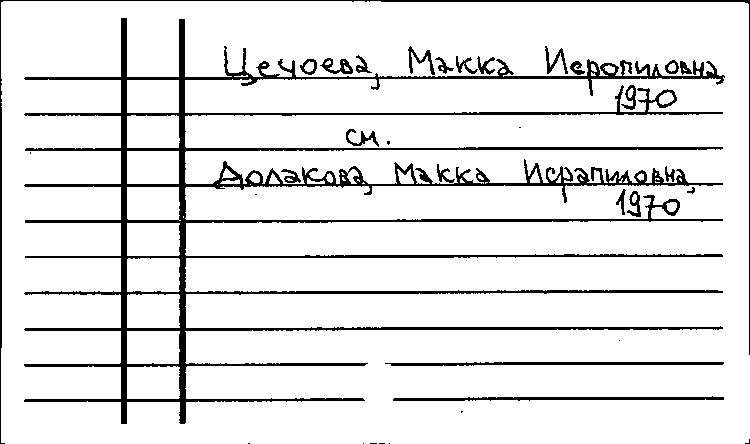 Цечоева, Макка Исропиловна,
1970
см.
Долакова, Макка Исрапиловна,
1970